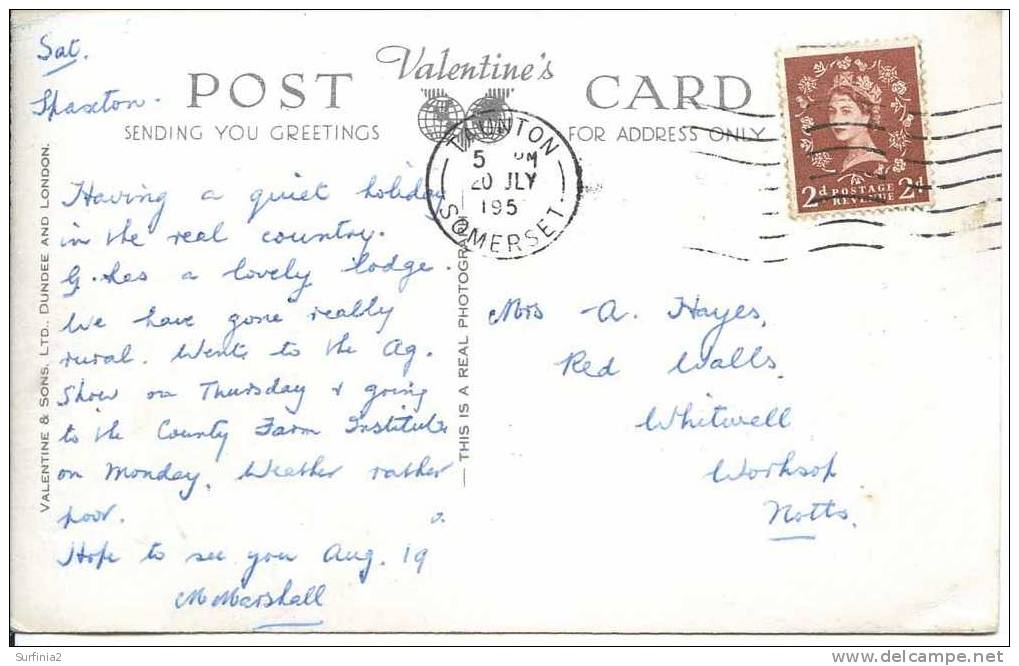 Sat.
Spaxton.
POST
Valentine's
CARD
SENDING YOU GREETINGS
FOR ADDRESS ONLY
TAUNTON
5 PM
20 JLY
195
SOMERSET
2d POSTAGE 2d
REVENUE
Having a quiet holiday
in the real country.
G. has a lovely lodge.
We have gone really
rural. Went to the Ag.
Show on Thursday & going
to the County Farm Institute
on Monday. Weather rather
poor.
Hope to see you Aug. 19
M Marshall
VALENTINE & SONS, LTD., DUNDEE AND LONDON.
— THIS IS A REAL PHOTOGRA
Mrs A. Hayes,
Red Walls,
Whitwell
Worksop
Notts.
Surfinia2
delcampe.net